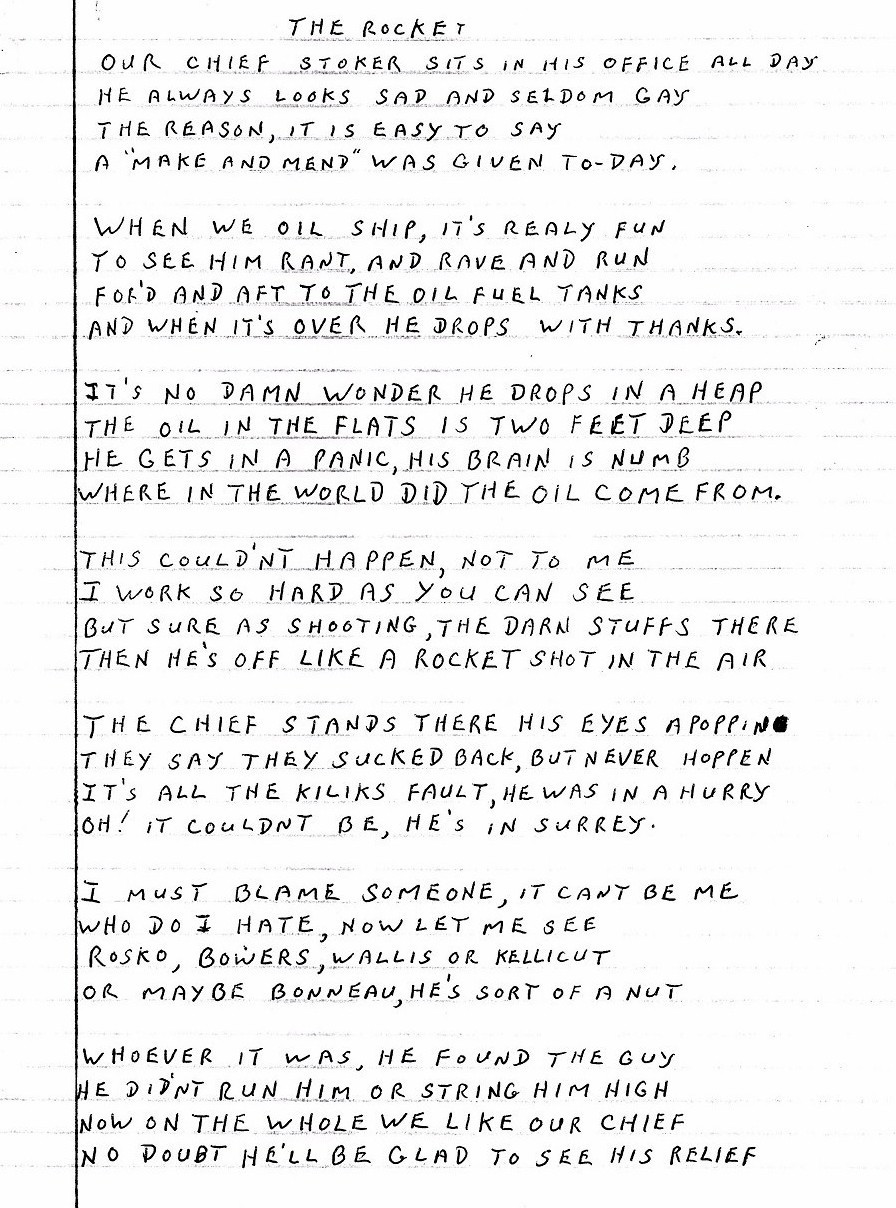 THE ROCKET
OUR CHIEF STOKER SITS IN HIS OFFICE ALL DAY
HE ALWAYS LOOKS SAD AND SELDOM GAY
THE REASON, IT IS EASY TO SAY
A "MAKE AND MEND" WAS GIVEN TO-DAY.
WHEN WE OIL SHIP, IT'S REALY FUN
TO SEE HIM RANT, AND RAVE AND RUN
FOR'D AND AFT TO THE OIL FUEL TANKS
AND WHEN IT'S OVER HE DROPS WITH THANKS.
IT'S NO DAMN WONDER HE DROPS IN A HEAP
THE OIL IN THE FLATS IS TWO FEET DEEP
HE GETS IN A PANIC, HIS BRAIN IS NUMB
WHERE IN THE WORLD DID THE OIL COME FROM.
THIS COULD'NT HAPPEN, NOT TO ME
I WORK SO HARD AS YOU CAN SEE
BUT SURE AS SHOOTING, THE DARN STUFFS THERE
THEN HE'S OFF LIKE A ROCKET SHOT IN THE AIR
THE CHIEF STANDS THERE HIS EYES APOPPING
THEY SAY THEY SUCKED BACK, BUT NEVER HOPPEN
IT'S ALL THE KILIKS FAULT, HE WAS IN A HURRY
OH! IT COULDNT BE, HE'S IN SURREY.
I MUST BLAME SOMEONE, IT CANT BE ME
WHO DO I HATE, NOW LET ME SEE
ROSKO, BOWERS, WALLIS OR KELLICUT
OR MAYBE BONNEAU, HE'S SORT OF A NUT
WHOEVER IT WAS, HE FOUND THE GUY
HE DID'NT RUN HIM OR STRING HIM HIGH
NOW ON THE WHOLE WE LIKE OUR CHIEF
NO DOUBT HE'LL BE GLAD TO SEE HIS RELIEF